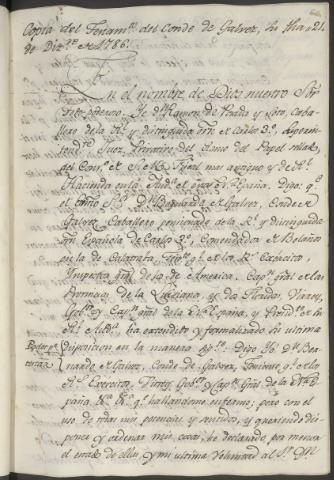 Copia del Testam.to del Conde de Galvez, su fha 21
de Dic.re de 1786.
En el nombre de Dios nuestro Sor
todo poderoso. Yo Dn Ramon de Posada y Soto, Caba-
llero de la Rl y distinguida orn de Carlos 3.o,
Juez Privativo del Ramo del Papel sellado,
del Cons.o de S. M. Fiscal mas antiguo y de Rl
Hacienda en la Aud.a de España. Digo: q.e
el Dn Bernardo de Galvez, Conde de
Galvez Caballero pensionado de la Rl y distinguida
orn Española de Carlos 3.o, Comendador de Bolaños
en la de Calatrava, Ten.te gl de los Rs Exercitos,
Inspector gral de la de America, Cap.n gral de las
Provincias de la Luiciana, y dos Floridas, Virrey,
Gob.or y Cap.n gral de la Na España, y Presid.te de la
Rl Aud.a ha extendido y formalizado su ultima
disposicion en la manera sig.te Digo Yo Dn Ber-
nardo de Galvez, Conde de Galvez, Teniente gl de los
Rs Exercitos, Virrey, Gob.or y Cap.n Gral de la Na Es-
paña q.e hallandome enfermo; pero con el
uso de todas mis potencias y sentidos, y queriendo dis-
poner y ordenar mis cosas; he declarado, por menor
el estado de ellas y mi ultima Voluntad al Sr